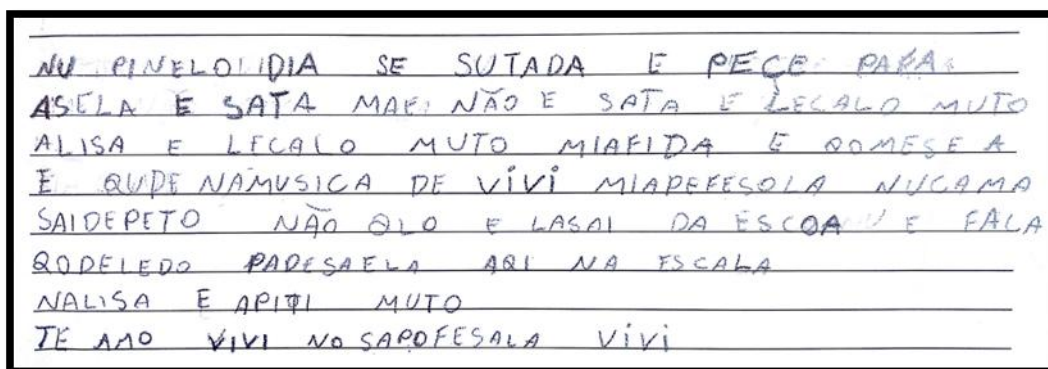 NU PINELOLIDIA SE SUTADA E PEÇE PARA
ASELA E SATA MAE NÃO E SATA E LECALO MUTO
ALISA E LECALO MUTO MIAFIDA E QOMESE A
E QUDE NAMUSICA DE VIVI MIAPEFESOLA NUCAMA
SAIDEPETO NÃO QLO E LASAI DA ESCOA E FALA
QODELEDO PADESAELA AQI NA ESCALA
NALISA E APITI MUTO
TE AMO VIVI NOSAPOFESALA VIVI